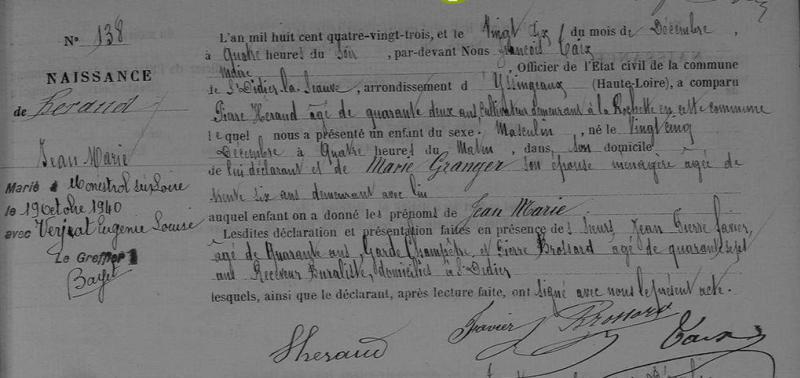 N° 138
NAISSANCE
de Heraud
Jean Marie
Marié à Monistrol sur Loire
le 19 Octobre 1940
avec Verjat Eugenie Louise
Le Greffier
L'an mil huit cent quatre-vingt-trois, et le Vingt six du mois de Décembre,
à Quatre heures du Soir, par-devant Nous François Caix
Maire, Officier de l'État civil de la commune
de St Didier-la-Seauve, arrondissement d'Yssingeaux (Haute-Loire), a comparu
Pierre Heraud âgé de quarante deux ans Cultivateur demeurant à la Rochette en cette commune
lequel nous a présenté un enfant du sexe Masculin, né le Vingt cinq
Décembre à Quatre heures du Matin, dans son domicile
de lui déclarant et de Marie Granger son épouse menagère âgée de
trente six ans demeurant avec lui
auquel enfant on a donné les prénoms de Jean Marie
Lesdites déclaration et présentation faites en présence des Sieurs Jean Pierre Favier,
âgé de Quarante ans, Garde Champêtre, et Pierre Brossard âgé de quarante sept
ans Receveur Buraliste, domiciliés à St Didier
lesquels, ainsi que le déclarant, après lecture faite, ont signé avec nous le présent acte.
Heraud Favier Brossard Caix